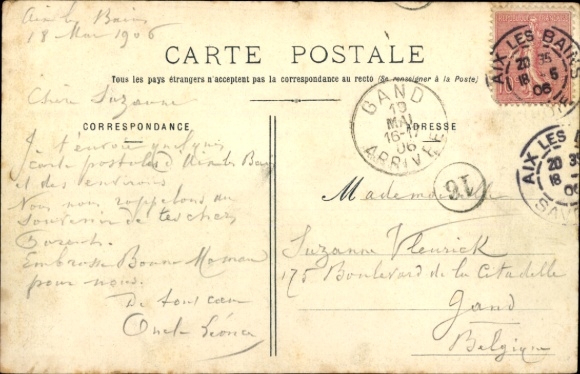 Aix les Bains
18 Mai 1906
CARTE POSTALE
Tous les pays étrangers n'acceptent pas la correspondance au recto (Se renseigner à la Poste)
CORRESPONDANCE
ADRESSE
Chère Suzanne
Je t'envoie quelques
carte postales d'Aix les Bains
et des environs
Nous nous rappelons au
souvenir de tes chers
Parents.
Embrasse Bonne Maman
pour nous.
De tout coeur
Oncle Léonce
GAND
19
MAI
16-17
06
ARRIVÉE
AIX LES BAINS
20 35
18 5
06
AIX LES
20 35
18
06
SAV
16
Mademoiselle
Suzanne Vleurick
175 Boulevard de la Citadelle
Gand
Belgique